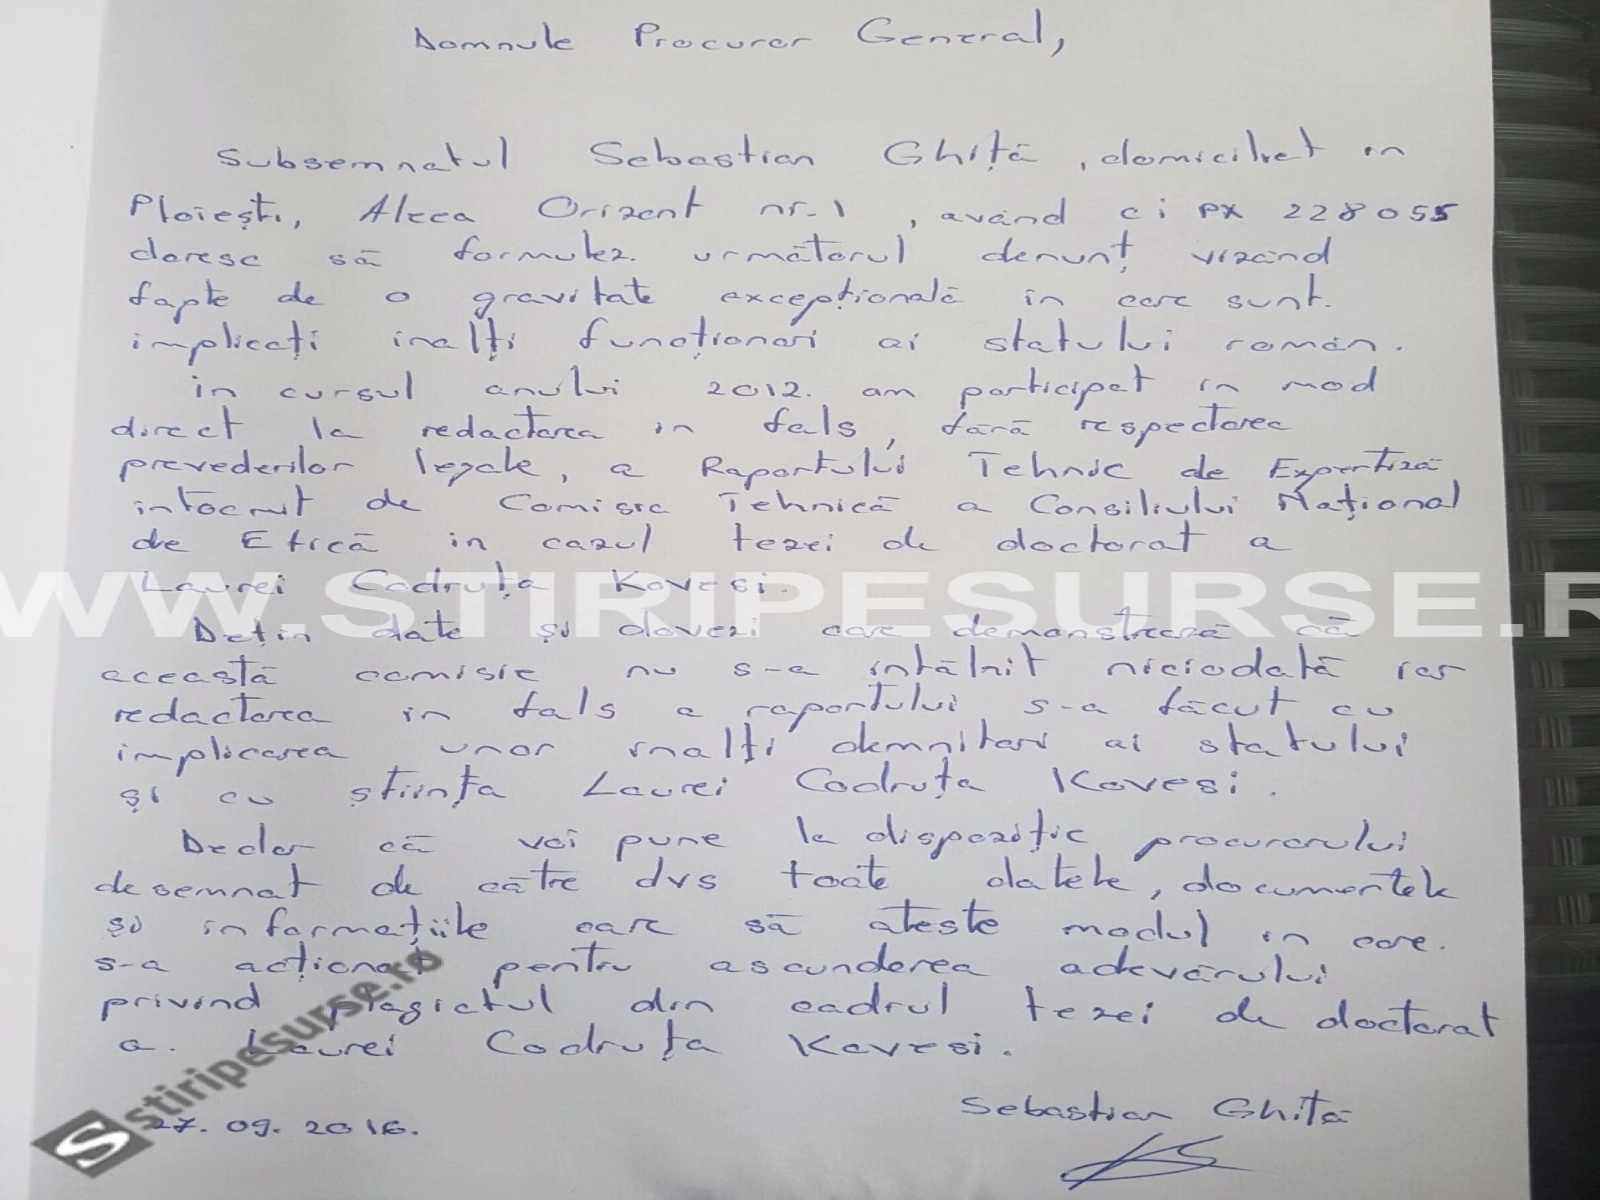 Domnule Procuror General,
Subsemnatul Sebastian Ghiță, domiciliat in
Ploiești, Aleea Orizont nr.1, având ci PX 228055
doresc să formulez următorul denunț vizând
fapte de o gravitate excepțională in care sunt
implicați inalți funcționari ai statului român.
in cursul anului 2012. am participat in mod
direct la redactarea in fals, fără respectarea
prevederilor legale, a Raportului Tehnic de Expertiză
intocmit de Comisia Tehnică a Consiliului Național
de Etică in cazul tezei de doctorat a
Laurei Codruța Kovesi.
WWW.STIRIPESURSE.R
Dețin date și dovezi care demonstrează că
această comisie nu s-a intâlnit niciodată iar
redactarea in fals a raportului s-a făcut cu
implicarea unor inalți demnitari ai statului
și cu știința Laurei Codruța Kovesi.
Declar că voi pune la dispoziție procurorului
desemnat de către dvs toate datele, documentele
și informațiile care să ateste modul in care.
s-a acționat pentru ascunderea adevărului
privind plagiatul din cadrul tezei de doctorat
a. Laurei Codruța Kovesi.
Sebastian Ghiță
27.09.2016.
S stiripesurse.ro